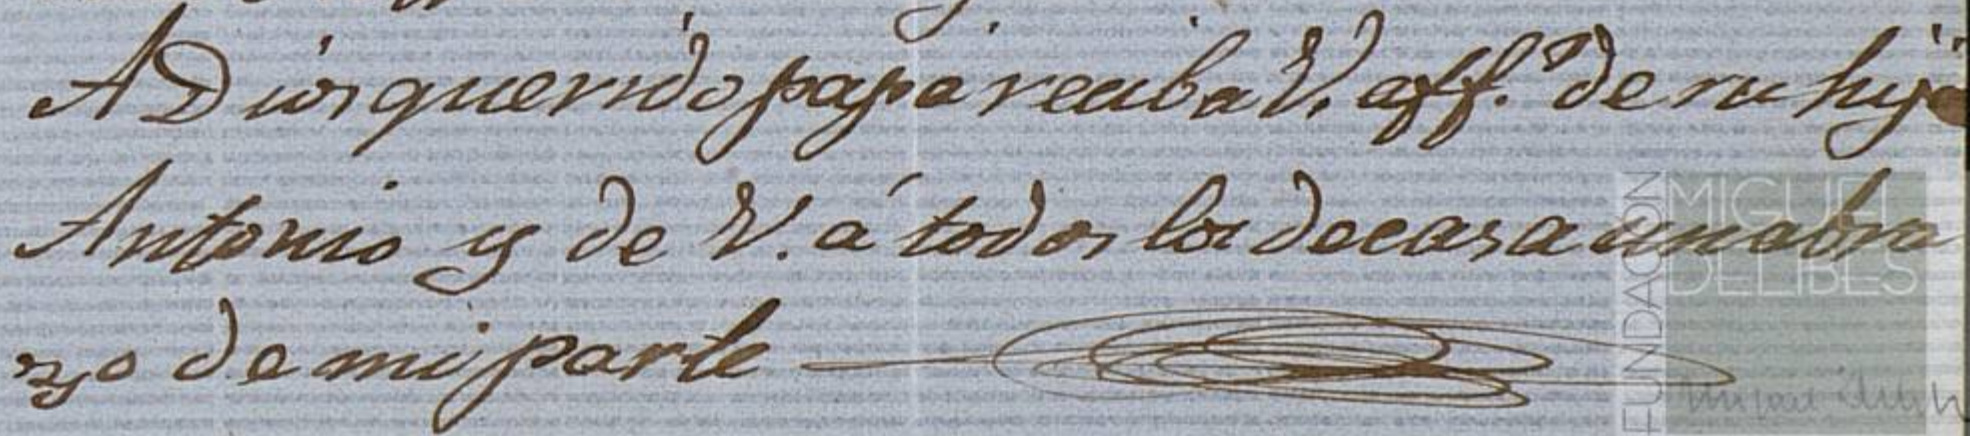 ADios querido papa reciba V. aff.º de su hijo
Antonio y de V. á todos los de casa un abra
zo de mi parte
FUNDACIÓN
MIGUEL
DELIBES